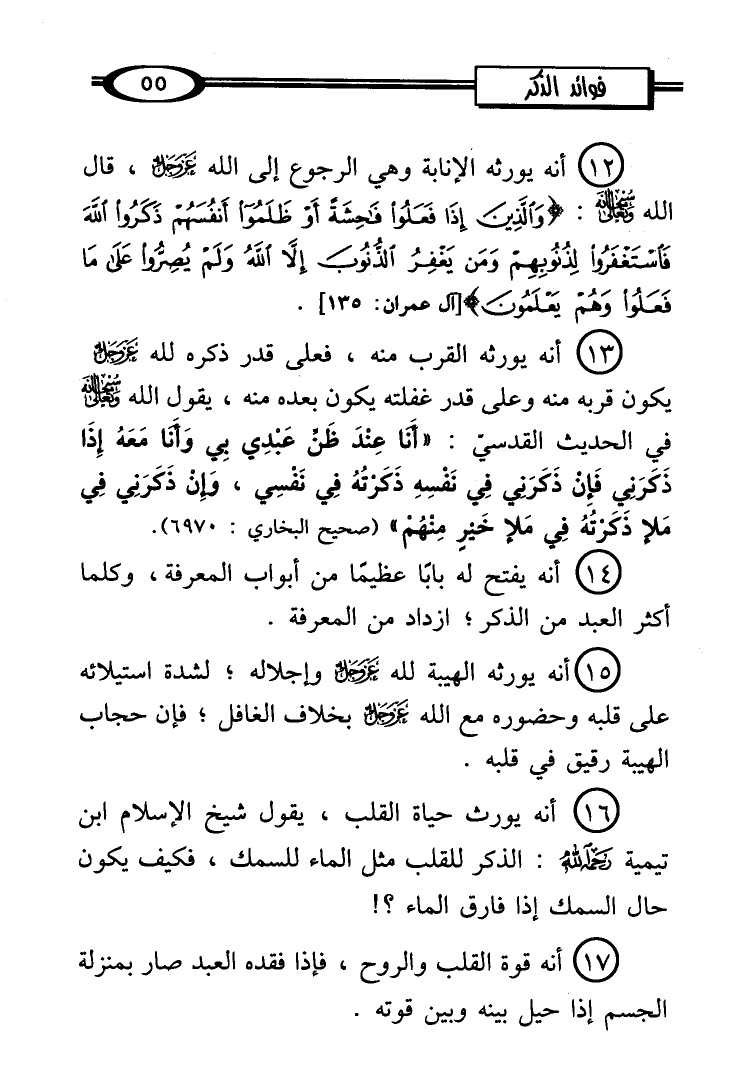 فوائد الذكر
٥٥
١٢ أنه يورثه الإنابة وهي الرجوع إلى الله عَزَّوَجَلَّ ، قال
الله سُبْحَانَهُ وَتَعَالَى : ﴿وَٱلَّذِينَ إِذَا فَعَلُوا۟ فَـٰحِشَةً أَوْ ظَلَمُوٓا۟ أَنفُسَهُمْ ذَكَرُوا۟ ٱللَّهَ
فَٱسْتَغْفَرُوا۟ لِذُنُوبِهِمْ وَمَن يَغْفِرُ ٱلذُّنُوبَ إِلَّا ٱللَّهُ وَلَمْ يُصِرُّوا۟ عَلَىٰ مَا
فَعَلُوا۟ وَهُمْ يَعْلَمُونَ﴾ [آل عمران: ١٣٥] .
١٣ أنه يورثه القرب منه ، فعلى قدر ذكره لله عَزَّوَجَلَّ
يكون قربه منه وعلى قدر غفلته يكون بعده منه ، يقول الله سُبْحَانَهُ وَتَعَالَى
في الحديث القدسيّ : «أَنَا عِنْدَ ظَنِّ عَبْدِي بِي وَأَنَا مَعَهُ إِذَا
ذَكَرَنِي فَإِنْ ذَكَرَنِي فِي نَفْسِهِ ذَكَرْتُهُ فِي نَفْسِي ، وَإِنْ ذَكَرَنِي فِي
مَلَإٍ ذَكَرْتُهُ فِي مَلَإٍ خَيْرٍ مِنْهُمْ» (صحيح البخاري : ٦٩٧٠).
١٤ أنه يفتح له بابًا عظيمًا من أبواب المعرفة ، وكلما
أكثر العبد من الذكر ؛ ازداد من المعرفة .
١٥ أنه يورثه الهيبة لله عَزَّوَجَلَّ وإجلاله ؛ لشدة استيلائه
على قلبه وحضوره مع الله عَزَّوَجَلَّ بخلاف الغافل ؛ فإن حجاب
الهيبة رقيق في قلبه .
١٦ أنه يورث حياة القلب ، يقول شيخ الإسلام ابن
تيمية رَحِمَهُ اللَّهُ : الذكر للقلب مثل الماء للسمك ، فكيف يكون
حال السمك إذا فارق الماء ؟!
١٧ أنه قوة القلب والروح ، فإذا فقده العبد صار بمنزلة
الجسم إذا حيل بينه وبين قوته .